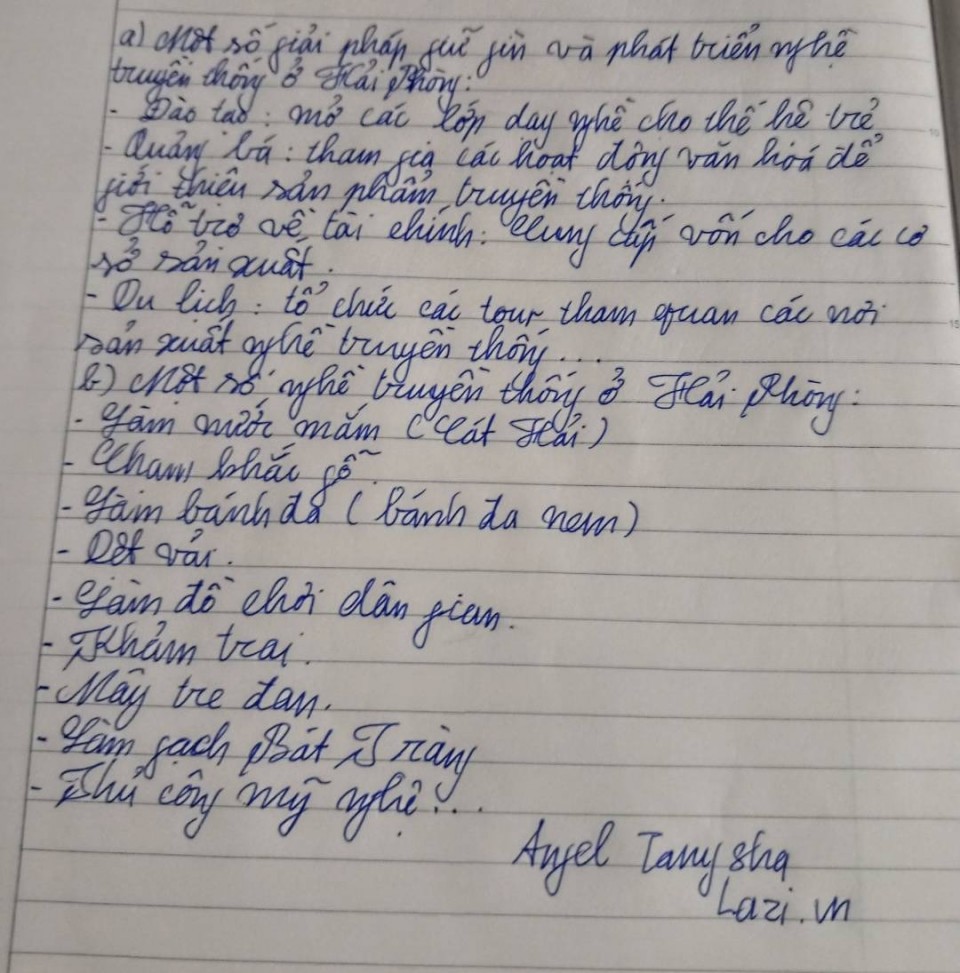 a) Một số giải pháp giữ gìn và phát triển nghề
truyền thống ở Hải Phòng:
- Đào tạo: mở các lớp dạy nghề cho thế hệ trẻ
- Quảng bá: tham gia các hoạt động văn hoá để
giới thiệu sản phẩm truyền thống.
- Hỗ trợ về tài chính: Cung cấp vốn cho các cơ
sở sản xuất.
- Du lịch: tổ chức các tour tham quan các nơi
sản xuất nghề truyền thống...
b) Một số nghề truyền thống ở Hải Phòng:
- Làm nước mắm (Cát Hải)
- Chạm khắc gỗ.
- Làm bánh đa (bánh đa nem)
- Dệt vải.
- Làm đồ chơi dân gian.
- Khảm trai.
- Mây tre đan.
- Làm gạch Bát Tràng
- Thủ công mỹ nghệ...
Anjel Tanysha
Lazi.vn